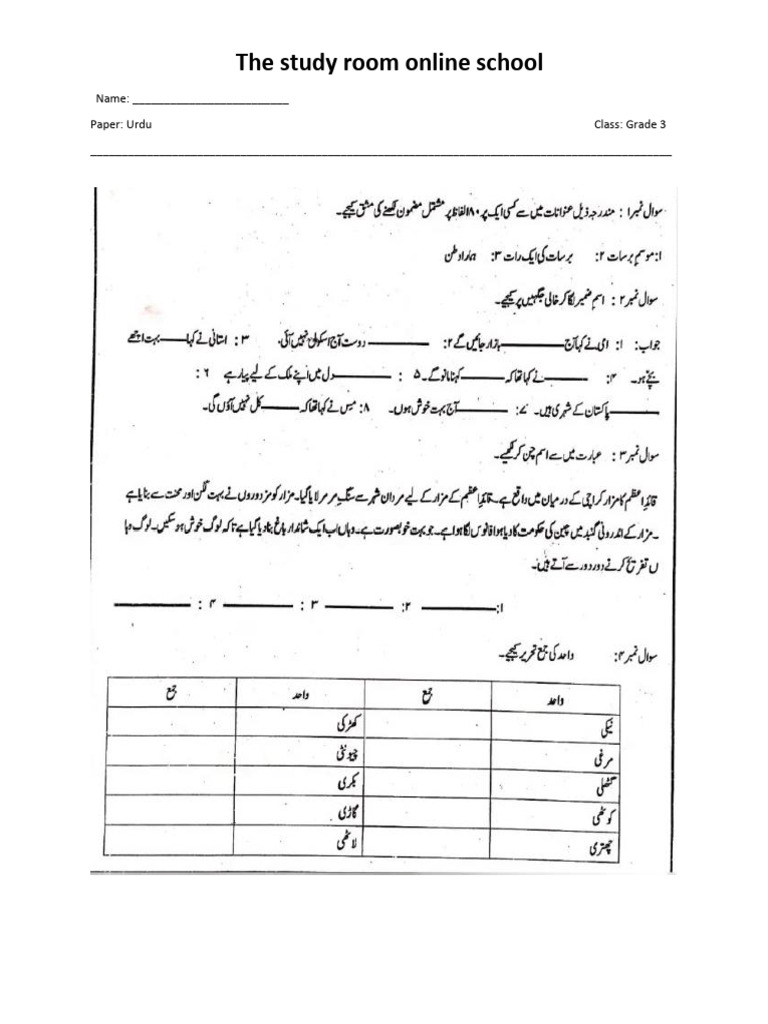 The study room online school
Name: _________________________
Paper: Urdu Class: Grade 3
سوال نمبر۱ : مندرجہ ذیل عنوانات میں سے کسی ایک پر ۱۸۰ الفاظ پر مشتمل مضمون لکھنے کی مشق کیجیے۔
۱: موسم برسات ۲: برسات کی ایک رات ۳: ہمارا وطن
سوال نمبر ۲ : اسم ضمیر لگا کر خالی جگہیں پر کیجیے۔
جواب: ۱: امی نے کہا آج ______ بازار جائیں گے ۲: ______ دوست آج اسکول نہیں آئی۔ ۳ : استانی نے کہا ______ بہت اچھے
بچے ہو۔ ۴: ______ نے کہا تھا کہ ______ کہنا مانو گے۔ ۵ : ______ دل میں اپنے ملک کے لیے پیار ہے ۶ :
______ پاکستان کے شہری ہیں۔ ۷: ______ آج بہت خوش ہوں۔ ۸: مِس نے کہا تھا کہ ______ کل نہیں آؤں گی۔
سوال نمبر ۳ : عبارت میں سے اسم چن کر لکھیے۔
قائداعظم کا مزار کراچی کے درمیان میں واقع ہے۔ قائداعظم کے مزار کے لیے مردان شہر سے سنگِ مرمر لایا گیا۔ مزار کو مزدوروں نے بہت لگن اور محنت سے بنایا ہے
۔ مزار کے اندرونی گنبد میں چین کی حکومت کا دیا ہوا فانوس لگا ہوا ہے۔ جو بہت خوبصورت ہے۔ وہاں اب ایک شاندار باغ بنا دیا گیا ہے تاکہ لوگ خوش ہو سکیں۔ لوگ وہا
ں تفریح کرنے دور دور سے آتے ہیں۔
۱: ______ ۲: ______ ۳ : ______ ۴ : ______
سوال نمبر ۴: واحد کی جمع تحریر کیجیے۔
واحد جمع واحد جمع
نیکی کھڑکی
مرغی چیونٹی
گٹھلی بکری
کوٹھی گاڑی
چھتری لاٹھی